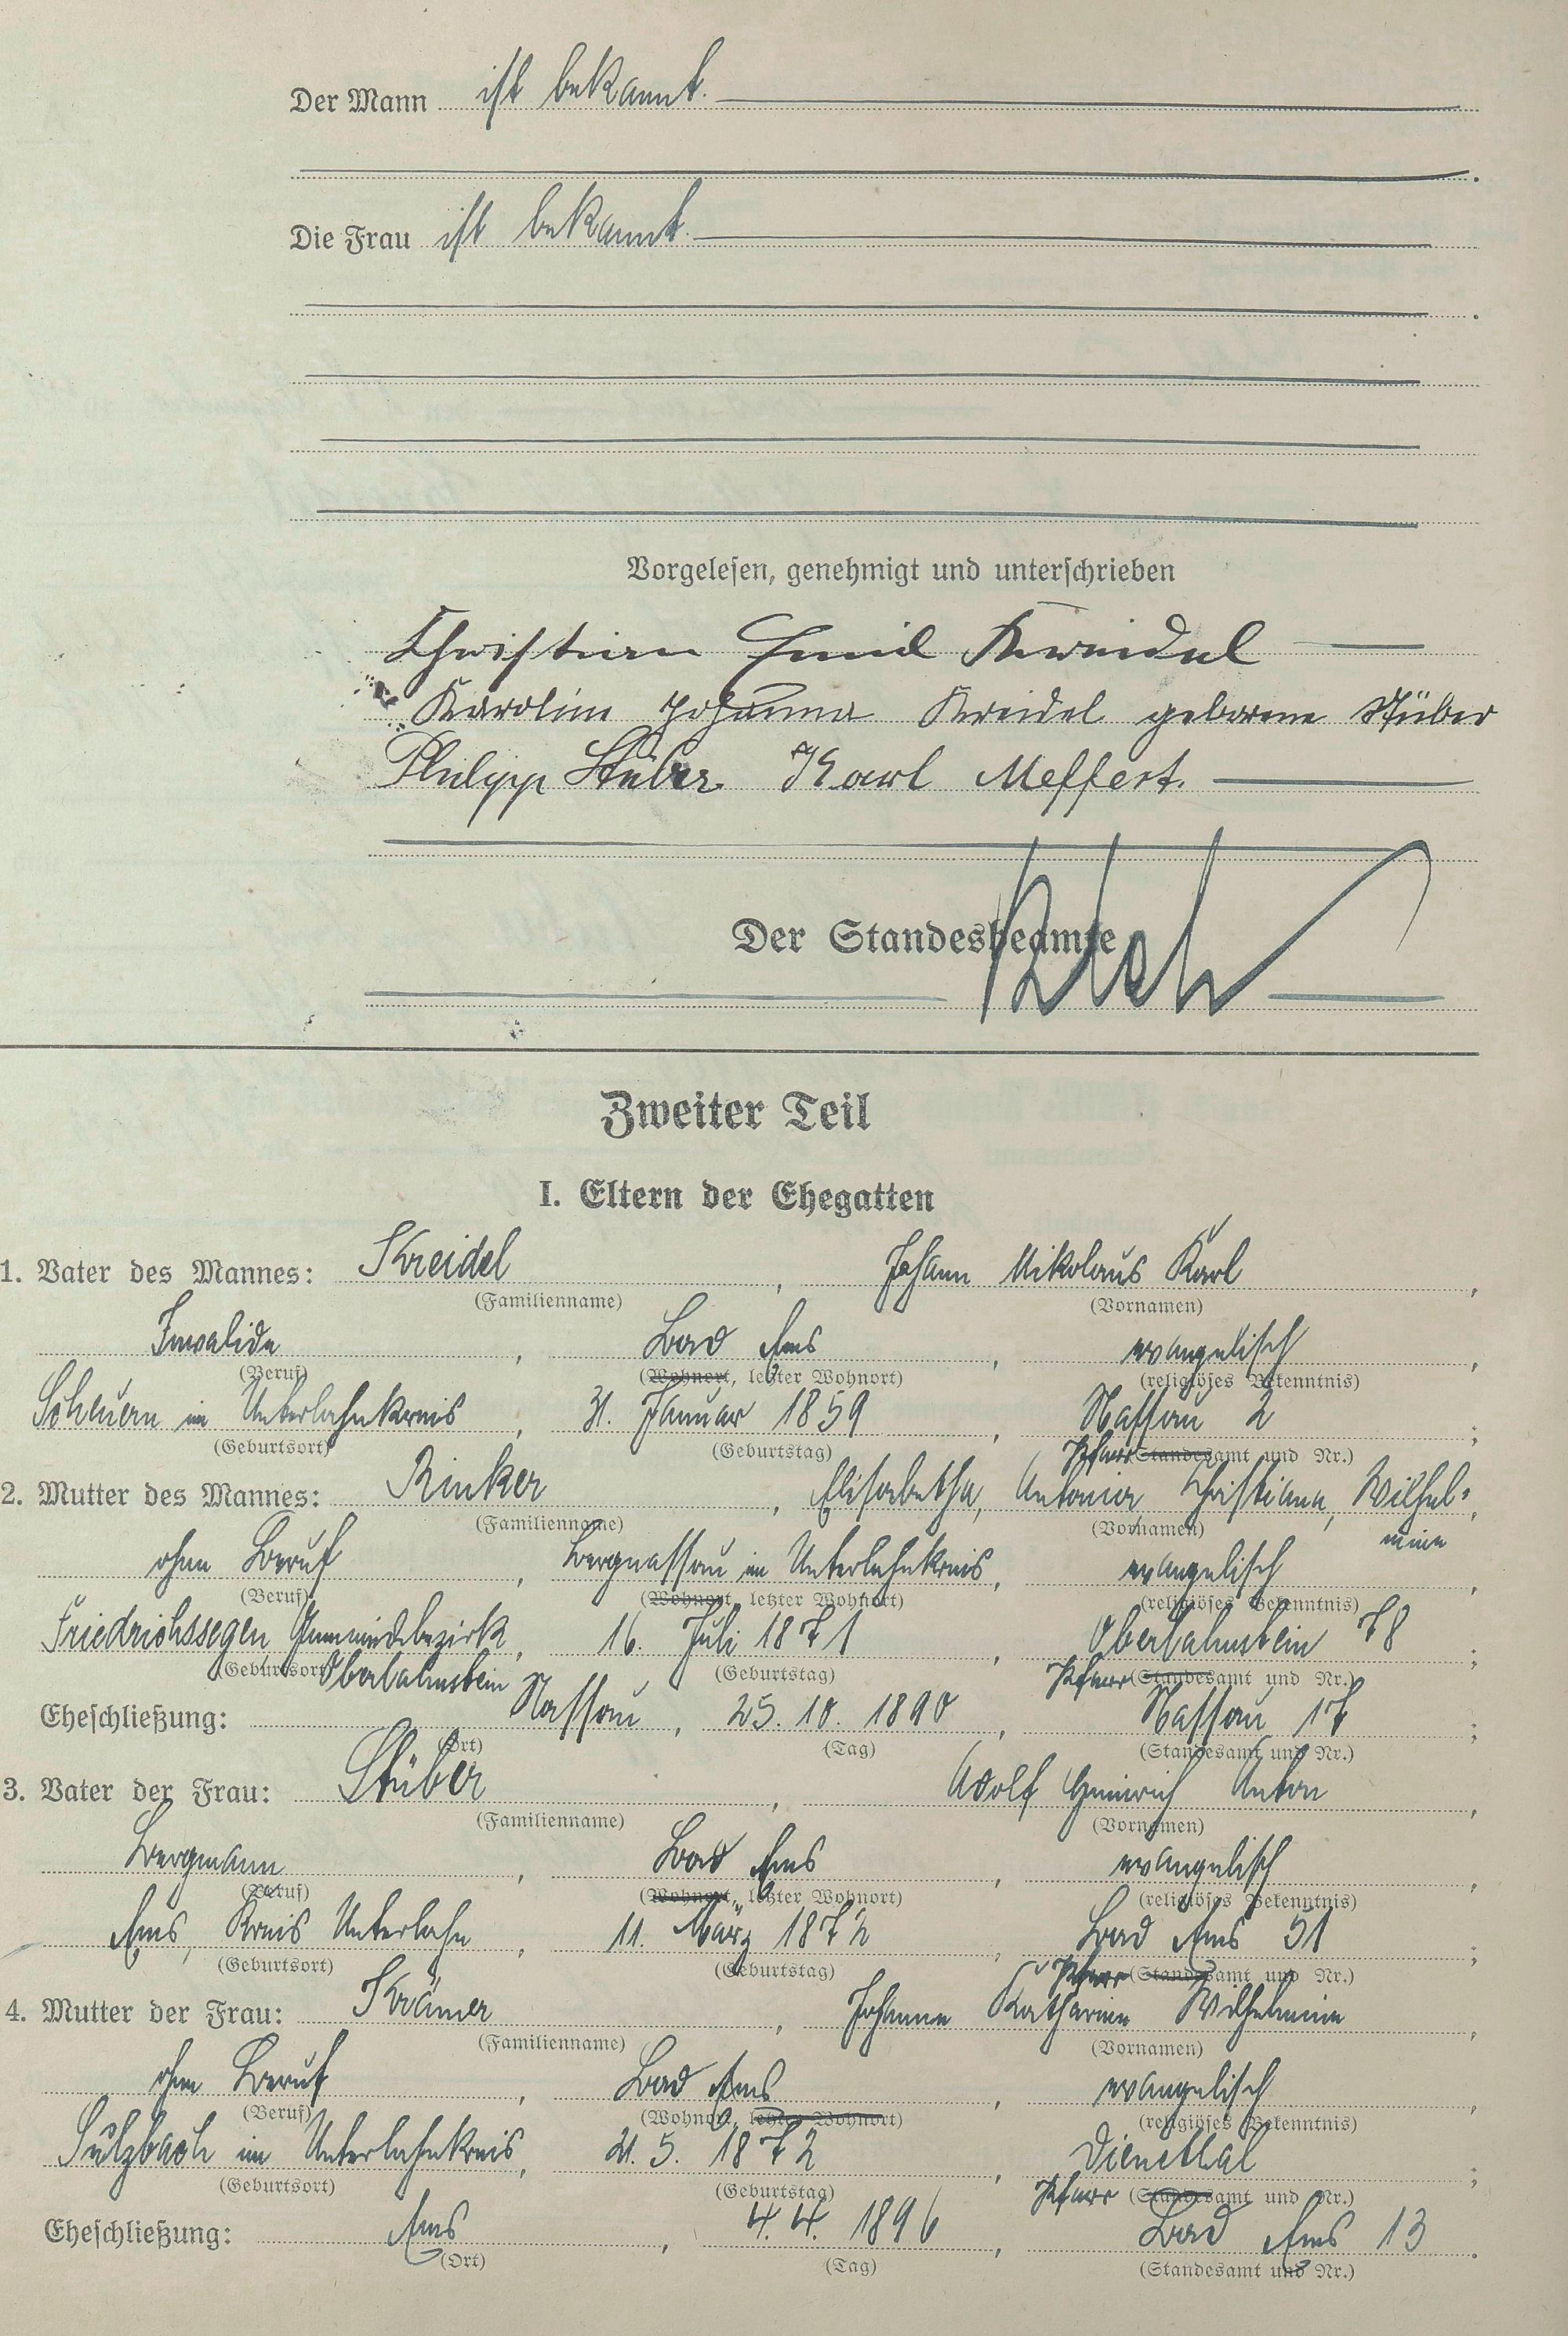 Der Mann ist bekannt.
Die Frau ist bekannt.
Vorgelesen, genehmigt und unterschrieben
Christian Emil Kreidel
Karoline Johanna Kreidel geborene Stüber
Philipp Stüber Karl Meffert.
Der Standesbeamte
Zweiter Teil
I. Eltern der Ehegatten
1. Vater des Mannes: Kreidel, Johann Nikolaus Karl,
(Familienname) (Vornamen)
Invalide, Bad Ems, evangelisch,
(Beruf) (Wohnort, letzter Wohnort) (religiöses Bekenntnis)
Scheuern im Unterlahnkreis, 31. Januar 1859, Nassau 2;
(Geburtsort) (Geburtstag) Pfarr (Standesamt und Nr.)
2. Mutter des Mannes: Rinker, Elisabetha, Antonia Christiana, Wilhel-
(Familienname) (Vornamen) mine
ohne Beruf, Bergnassau im Unterlahnkreis, evangelisch,
(Beruf) (Wohnort, letzter Wohnort) (religiöses Bekenntnis)
Friedrichssegen Gemeindebezirk, 16. Juli 1871, Oberlahnstein 78;
(Geburtsort) Oberlahnstein (Geburtstag) Pfarr (Standesamt und Nr.)
Eheschließung: Nassau, 25. 10. 1890, Nassau 17;
(Ort) (Tag) (Standesamt und Nr.)
3. Vater der Frau: Stüber, Adolf Heinrich Anton,
(Familienname) (Vornamen)
Bergmann, Bad Ems, evangelisch,
(Beruf) (Wohnort, letzter Wohnort) (religiöses Bekenntnis)
Ems, Kreis Unterlahn, 11. März 1872, Bad Ems 51;
(Geburtsort) (Geburtstag) Pfarr (Standesamt und Nr.)
4. Mutter der Frau: Krämer, Johanne Katharine Wilhelmine,
(Familienname) (Vornamen)
ohne Beruf, Bad Ems, evangelisch,
(Beruf) (Wohnort, letzter Wohnort) (religiöses Bekenntnis)
Sulzbach im Unterlahnkreis, 21. 5. 1872, Dienethal;
(Geburtsort) (Geburtstag) Pfarr (Standesamt und Nr.)
Eheschließung: Ems, 4. 4. 1896, Bad Ems 13.
(Ort) (Tag) (Standesamt und Nr.)